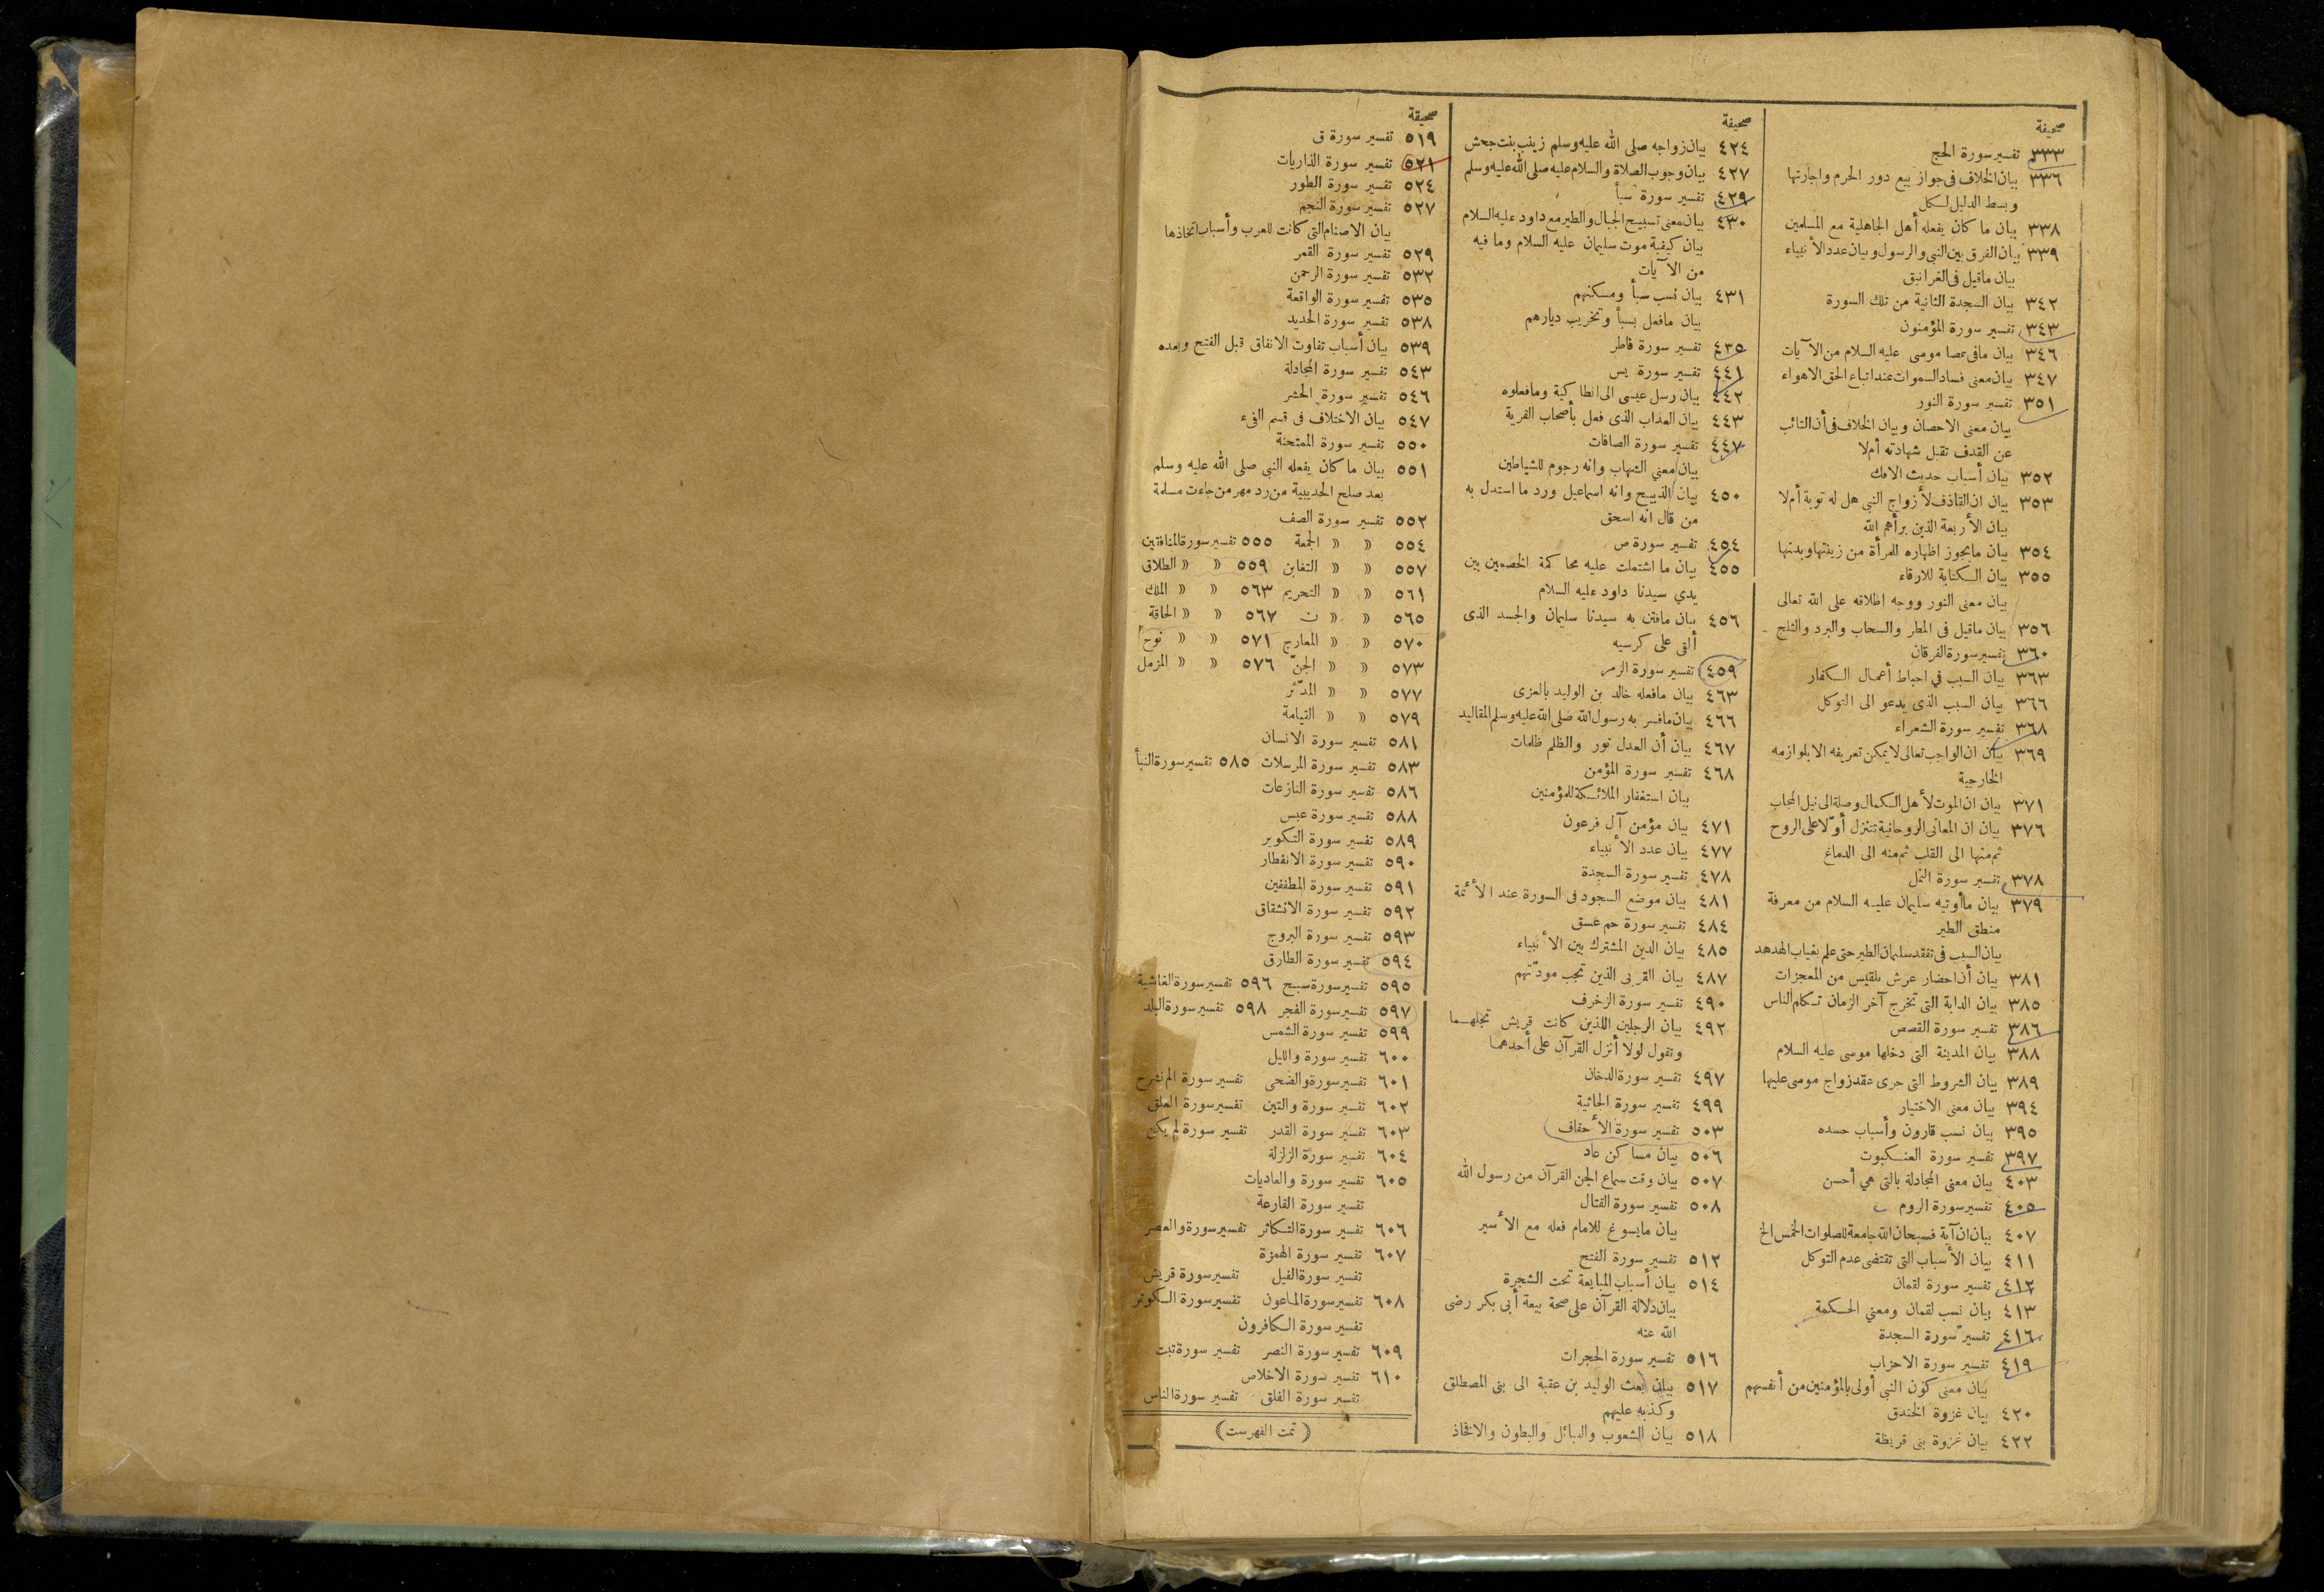 صحيفة
٣٣٣ تفسير سورة الحج
٣٣٦ بيان الخلاف فى جواز بيع دور الحرم واجارتها
وبسط الدليل لكل
٣٣٨ بيان ما كان يفعله أهل الجاهلية مع المسلمين
٣٣٩ بيان الفرق بين النبى والرسول وبيان عدد الأنبياء
بيان ماقيل فى الغرانيق
٣٤٢ بيان السجدة الثانية من تلك السورة
٣٤٣ تفسير سورة المؤمنون
٣٤٦ بيان مافى عصا موسى عليه السلام من الآيات
٣٤٧ بيان معنى فساد السموات عند اتباع الحق الاهواء
٣٥١ تفسير سورة النور
بيان معنى الاحصان وبيان الخلاف فى أن التائب
عن القذف تقبل شهادته أم لا
٣٥٢ بيان أسباب حديث الافك
٣٥٣ بيان ان القاذف لأزواج النبى هل له توبة أم لا
بيان الأربعة الذين برأهم الله
٣٥٤ بيان مايجوز اظهاره للمرأة من زينتها وبدنها
٣٥٥ بيان الكتابة للارقاء
بيان معنى النور ووجه اطلاقه على الله تعالى
٣٥٦ بيان ماقيل فى المطر والسحاب والبرد والثلج
٣٦٠ تفسير سورة الفرقان
٣٦٣ بيان السبب في احباط أعمال الكفار
٣٦٦ بيان السبب الذى يدعو الى التوكل
٣٦٨ تفسير سورة الشعراء
٣٦٩ بيان ان الواجب تعالى لا يمكن تعريفه الا بلوازمه
الخارجية
٣٧١ بيان ان الموت لأهل الكمال وصلة الى نيل المحاب
٣٧٦ بيان ان المعانى الروحانية تتنزل أولا على الروح
ثم منها الى القلب ثم منه الى الدماغ
٣٧٨ تفسير سورة النمل
٣٧٩ بيان ما أوتيه سليمان عليه السلام من معرفة
منطق الطير
بيان السبب فى تفقد سليمان الطير حتى علم بغياب الهدهد
٣٨١ بيان أن احضار عرش بلقيس من المعجزات
٣٨٥ بيان الدابة التى تخرج آخر الزمان تكلم الناس
٣٨٦ تفسير سورة القصص
٣٨٨ بيان المدينة التى دخلها موسى عليه السلام
٣٨٩ بيان الشروط التى جرى عقد زواج موسى عليها
٣٩٤ بيان معنى الاختيار
٣٩٥ بيان نسب قارون وأسباب حسده
٣٩٧ تفسير سورة العنكبوت
٤٠٣ بيان معنى المجادلة بالتى هي أحسن
٤٠٥ تفسير سورة الروم
٤٠٧ بيان ان آية فسبحان الله جامعة للصلوات الخمس الخ
٤١١ بيان الأسباب التى تقتضى عدم التوكل
٤١٢ تفسير سورة لقمان
٤١٣ بيان نسب لقمان ومعني الحكمة
٤١٦ تفسير سورة السجدة
٤١٩ تفسير سورة الاحزاب
بيان معنى كون النبى أولى بالمؤمنين من أنفسهم
٤٢٠ بيان غزوة الخندق
٤٢٢ بيان غزوة بنى قريظة
صحيفة
٤٢٤ بيان زواجه صلى الله عليه وسلم زينب بنت جحش
٤٢٧ بيان وجوب الصلاة والسلام عليه صلى الله عليه وسلم
٤٢٩ تفسير سورة سبأ
٤٣٠ بيان معنى تسبيح الجبال والطير مع داود عليه السلام
بيان كيفية موت سليمان عليه السلام وما فيه
من الآيات
٤٣١ بيان نسب سبأ ومسكنهم
بيان مافعل بسبأ وتخريب ديارهم
٤٣٥ تفسير سورة فاطر
٤٤١ تفسير سورة يس
٤٤٢ بيان رسل عيسى الى انطاكية ومافعلوه
٤٤٣ بيان العذاب الذى فعل بأصحاب القرية
٤٤٧ تفسير سورة الصافات
بيان معني الشهاب وانه رجوم للشياطين
٤٥٠ بيان الذبيح وانه اسماعيل ورد ما استدل به
من قال انه اسحق
٤٥٤ تفسير سورة ص
٤٥٥ بيان ما اشتملت عليه محاكمة الخصمين بين
يدي سيدنا داود عليه السلام
٤٥٦ بيان مافتن به سيدنا سليمان والجسد الذى
ألقى على كرسيه
٤٥٩ تفسير سورة الزمر
٤٦٣ بيان مافعله خالد بن الوليد بالعزى
٤٦٦ بيان مافسر به رسول الله صلى الله عليه وسلم المقاليد
٤٦٧ بيان أن العدل نور والظلم ظلمات
٤٦٨ تفسير سورة المؤمن
بيان استغفار الملائكة للمؤمنين
٤٧١ بيان مؤمن آل فرعون
٤٧٧ بيان عدد الأنبياء
٤٧٨ تفسير سورة السجدة
٤٨١ بيان موضع السجود فى السورة عند الأئمة
٤٨٤ تفسير سورة حم عسق
٤٨٥ بيان الدين المشترك بين الأنبياء
٤٨٧ بيان القربى الذين تجب مودّتهم
٤٩٠ تفسير سورة الزخرف
٤٩٢ بيان الرجلين اللذين كانت قريش تجلهما
وتقول لولا أنزل القرآن على أحدهما
٤٩٧ تفسير سورة الدخان
٤٩٩ تفسير سورة الجاثية
٥٠٣ تفسير سورة الأحقاف
٥٠٦ بيان مساكن عاد
٥٠٧ بيان وقت سماع الجن القرآن من رسول الله
٥٠٨ تفسير سورة القتال
بيان مايسوغ للامام فعله مع الأسير
٥١٢ تفسير سورة الفتح
٥١٤ بيان أسباب المبايعة تحت الشجرة
بيان دلالة القرآن على صحة بيعة أبى بكر رضى
الله عنه
٥١٦ تفسير سورة الحجرات
٥١٧ بيان بعث الوليد بن عقبة الى بنى المصطلق
وكذبه عليهم
٥١٨ بيان الشعوب والقبائل والبطون والافخاذ
صحيفة
٥١٩ تفسير سورة ق
٥٢١ تفسير سورة الذاريات
٥٢٤ تفسير سورة الطور
٥٢٧ تفسير سورة النجم
بيان الاصنام التى كانت للعرب وأسباب اتخاذها
٥٢٩ تفسير سورة القمر
٥٣٢ تفسير سورة الرحمن
٥٣٥ تفسير سورة الواقعة
٥٣٨ تفسير سورة الحديد
٥٣٩ بيان أسباب تفاوت الانفاق قبل الفتح وبعده
٥٤٣ تفسير سورة المجادلة
٥٤٦ تفسير سورة الحشر
٥٤٧ بيان الاختلاف فى قسم الفىء
٥٥٠ تفسير سورة الممتحنة
٥٥١ بيان ما كان يفعله النبى صلى الله عليه وسلم
بعد صلح الحديبية من رد مهر من جاءت مسلمة
٥٥٢ تفسير سورة الصف
٥٥٤ » » الجمعة ٥٥٥ تفسير سورة المنافقين
٥٥٧ » » التغابن ٥٥٩ » » الطلاق
٥٦١ » » التحريم ٥٦٣ » » الملك
٥٦٥ » » ن ٥٦٧ » » الحاقة
٥٧٠ » » المعارج ٥٧١ » » نوح
٥٧٣ » » الجنّ ٥٧٦ » » المزمل
٥٧٧ » » المدّثر
٥٧٩ » » القيامة
٥٨١ تفسير سورة الانسان
٥٨٣ تفسير سورة المرسلات ٥٨٥ تفسير سورة النبأ
٥٨٦ تفسير سورة النازعات
٥٨٨ تفسير سورة عبس
٥٨٩ تفسير سورة التكوير
٥٩٠ تفسير سورة الانفطار
٥٩١ تفسير سورة المطففين
٥٩٢ تفسير سورة الانشقاق
٥٩٣ تفسير سورة البروج
٥٩٤ تفسير سورة الطارق
٥٩٥ تفسير سورة سبح ٥٩٦ تفسير سورة الغاشية
٥٩٧ تفسير سورة الفجر ٥٩٨ تفسير سورة البلد
٥٩٩ تفسير سورة الشمس
٦٠٠ تفسير سورة والليل
٦٠١ تفسير سورة والضحى تفسير سورة الم نشرح
٦٠٢ تفسير سورة والتين تفسير سورة العلق
٦٠٣ تفسير سورة القدر تفسير سورة لم يكن
٦٠٤ تفسير سورة الزلزلة
٦٠٥ تفسير سورة والعاديات
تفسير سورة القارعة
٦٠٦ تفسير سورة التكاثر تفسير سورة والعصر
٦٠٧ تفسير سورة الهمزة
تفسير سورة الفيل تفسير سورة قريش
٦٠٨ تفسير سورة الماعون تفسير سورة الكوثر
تفسير سورة الكافرون
٦٠٩ تفسير سورة النصر تفسير سورة تبت
٦١٠ تفسير سورة الاخلاص
تفسير سورة الفلق تفسير سورة الناس
(تمت الفهرست)